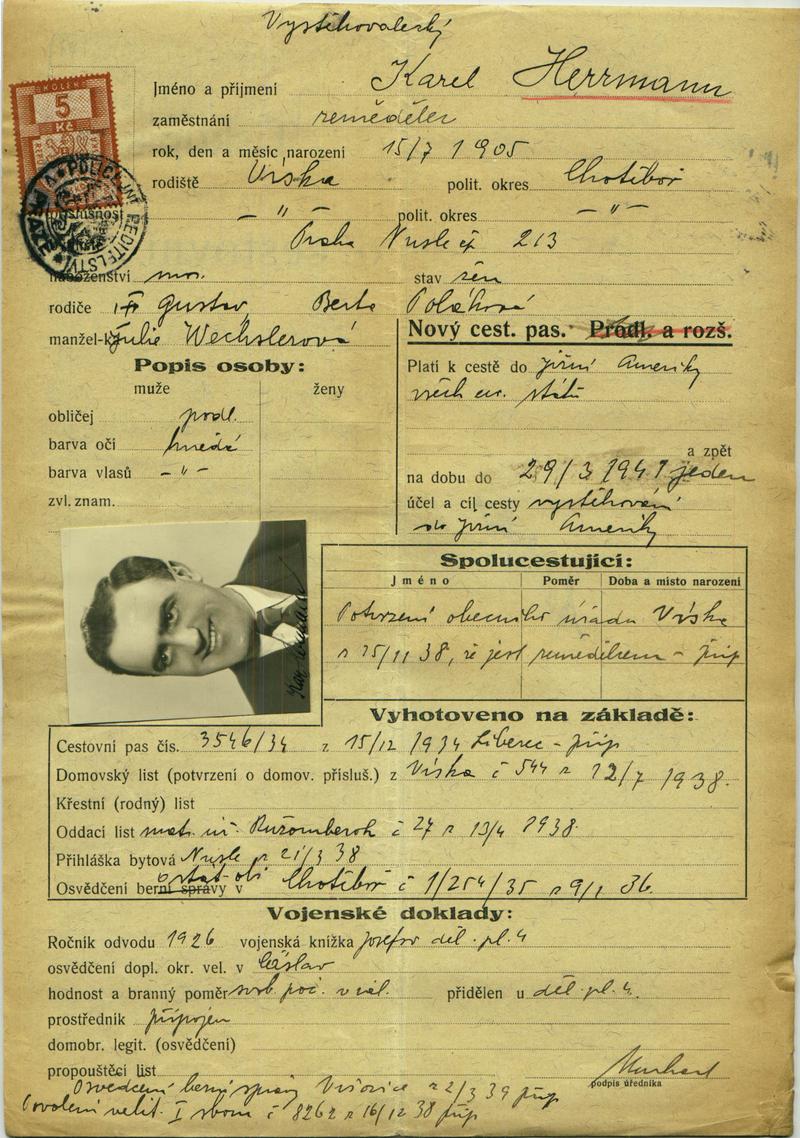 Vystěhovalecký
KOLEK
5
Kč
POLICEJNÍ ŘEDITELSTVÍ V PRAZE
Jméno a příjmení Karel Herrmann
zaměstnání zemědělec
rok, den a měsíc narození 15/7 1905
rodiště Vírska polit. okres Chotěboř
příslušnost – " – polit. okres – " –
Praha Nusle čp 213
náboženství mos. stav žen
rodiče Gustav, Berta Poláková
manžel-k Julie Wechslerová
Nový cest. pas. Prodl. a rozš.
Popis osoby:
muže ženy
obličej podl.
barva očí hnědá
barva vlasů – " –
zvl. znam.
Platí k cestě do jižní Ameriky
všech eu. států
a zpět
na dobu do 29/3 1941 jeden
účel a cíl cesty vystěhování
do jižní Ameriky
Spolucestující:
Jméno Poměr Doba a místo narození
Potvrzení obecního úřadu Víska
z 25/11 38, že jest zemědělcem – přip
Vyhotoveno na základě:
Cestovní pas čís. 3546/34 z 15/12 1934 Liberec – přip
Domovský list (potvrzení o domov. přísluš.) z Víska č 544 z 12/7 1938.
Křestní (rodný) list
Oddací list mat. úř. Ružomberok č 27 z 13/4 1938.
Přihláška bytová Nusle z 21/3 38
Osvědčení berní správy v o stát. obč Chotěboř č 1/254/35 z 9/1 36.
Vojenské doklady:
Ročník odvodu 1926 vojenská knížka Josefov děl. pl. 4
osvědčení dopl. okr. vel. v Čáslav
hodnost a branný poměr v zál. přidělen u děl. pl. 4.
prostředník připojen
domobr. legit. (osvědčení)
propouštěcí list
podpis úředníka
Osvědčení berní správy Vršovice z 2/3 39 přip
Povolení velit. I sboru č 8262 z 16/12 38 přip